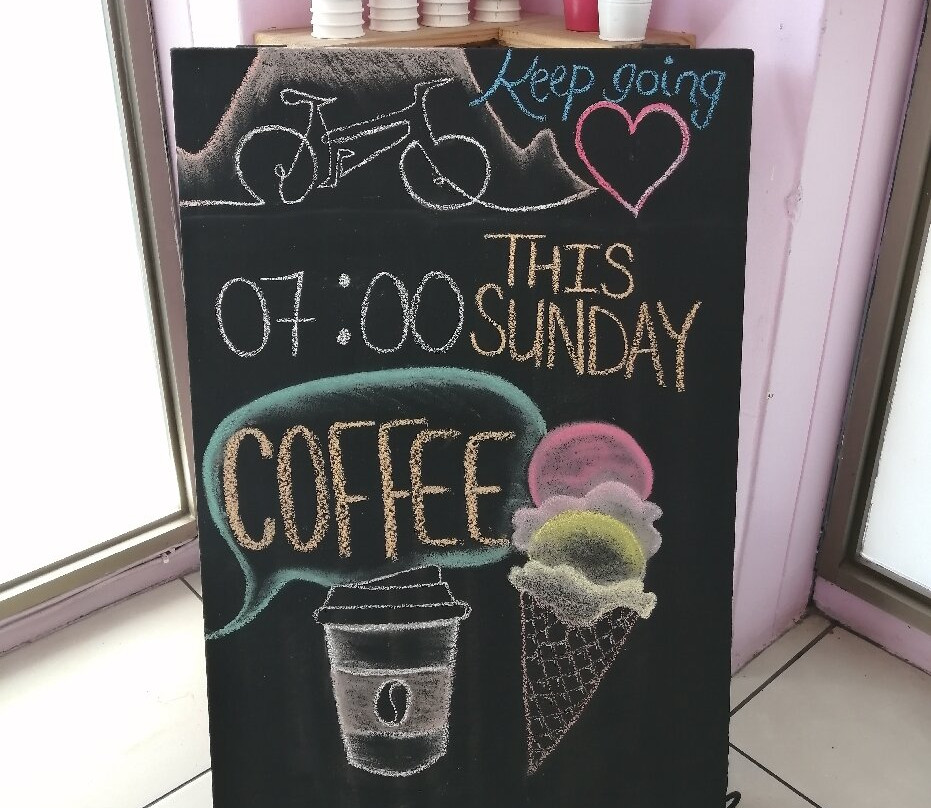 Keep going
07:00 THIS
SUNDAY
COFFEE